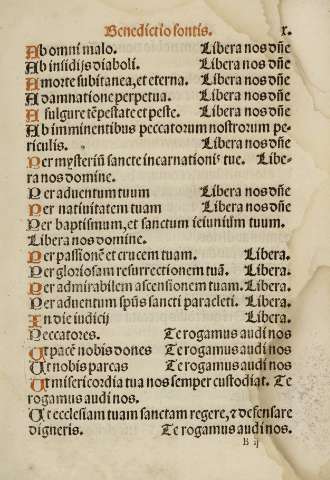 Benedictio fontis. x.
Ab omni malo. Libera nos dñe
Ab insidijs diaboli. Libera nos dñe
A morte subitanea, et eterna. Libera nos dñe
A damnatione perpetua. Libera nos dñe
A fulgure tẽpestate et peste. Libera nos dñe
Ab imminentibus peccatorum nostrorum pe-
riculis. Libera nos dñe
Per mysteriũ sancte incarnationis tue. Libe-
ra nos domine.
Per aduentum tuum Libera nos dñe
Per natiuitatem tuam Libera nos dñe
Per baptismum, et sanctum ieiunium tuum.
Libera nos domine.
Per passionẽ et crucem tuam. Libera.
Per gloriosam resurrectionem tuã. Libera.
Per admirabilem ascensionem tuam. Libera.
Per aduentum spũs sancti paracleti. Libera.
In die iudicij Libera.
Peccatores. Te rogamus audi nos
Ut pacẽ nobis dones Te rogamus audi nos
Ut nobis parcas Te rogamus audi nos
Ut misericordia tua nos semper custodiat. Te
rogamus audi nos.
Ut ecclesiam tuam sanctam regere, ⁊ defensare
digneris. Te rogamus audi nos.
B ij